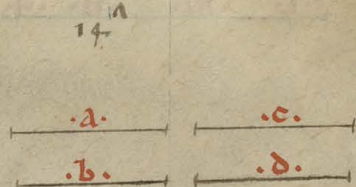 14
.a. .c.
.b. .d.